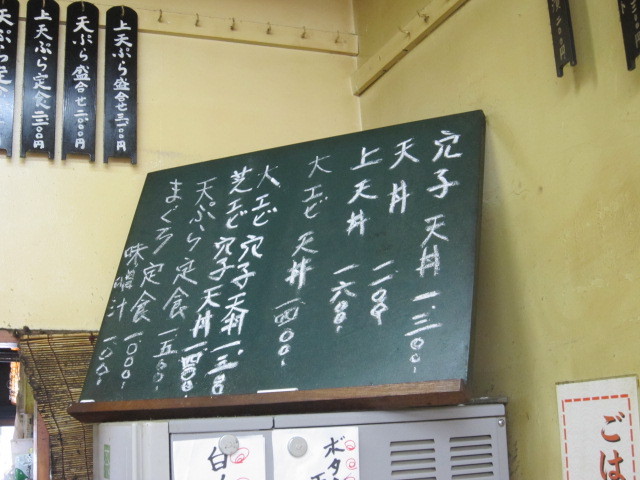 上天ぷら盛合せ
天ぷら盛合せ二.〇〇〇円
上天ぷら定食
穴子天丼一.三〇〇-
天丼一.二〇〇
上天丼一六〇〇-
大エビ天丼一四〇〇-
大エビ穴子天丼一.三〇〇
芝エビ穴子天丼一.四〇〇
天ぷら定食一五〇〇-
まぐろ定食一.〇〇〇-
味噌汁一〇〇-
ボタ
ごは